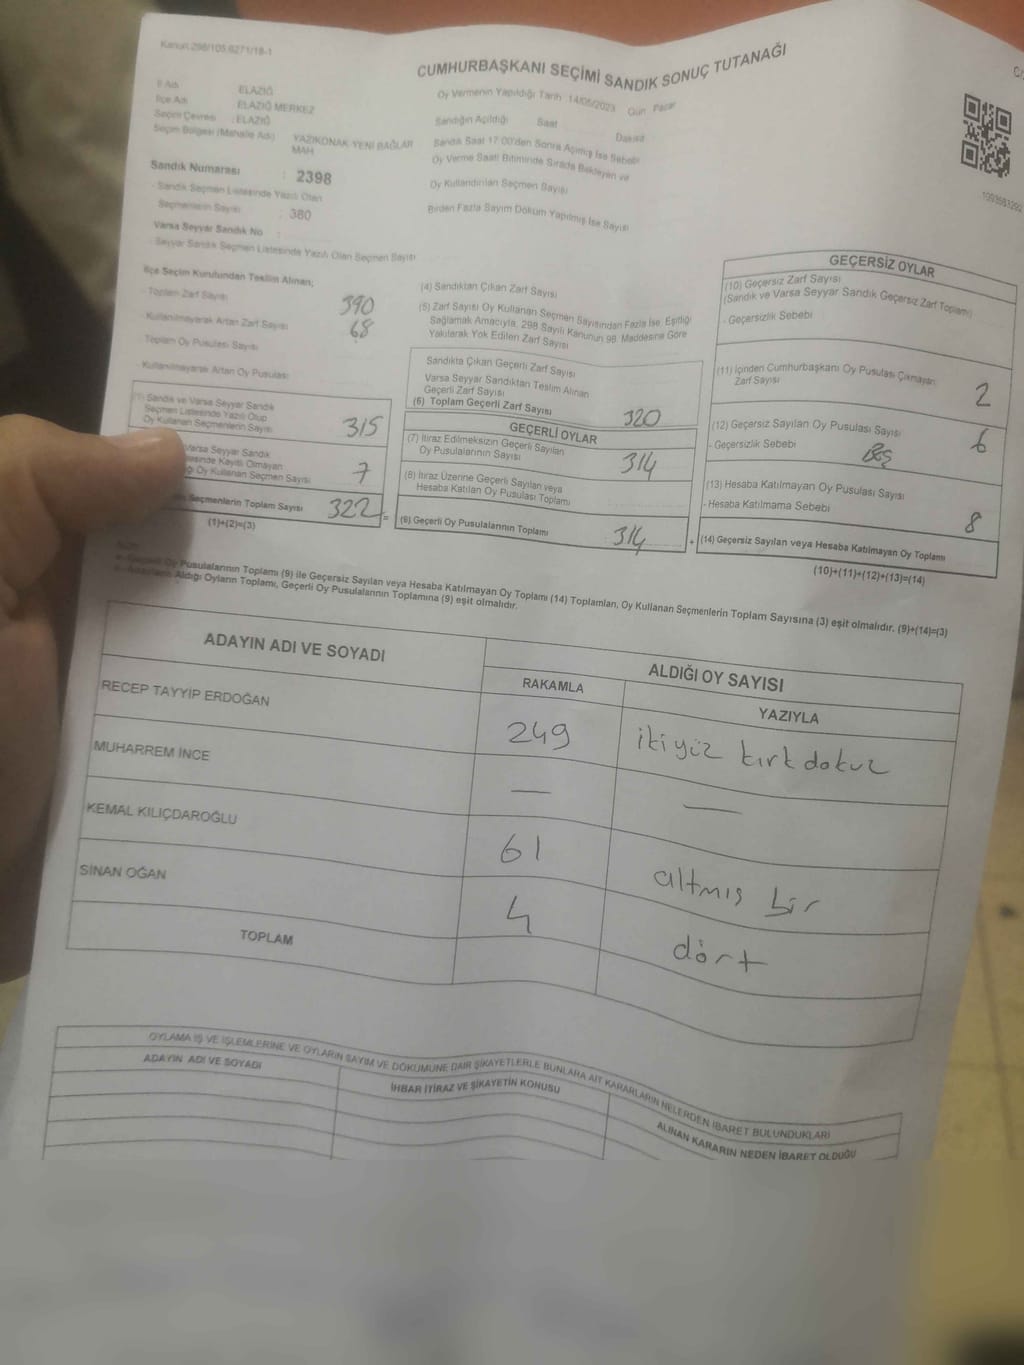 Kanun:298/105,6271/18-1
CUMHURBAŞKANI SEÇİMİ SANDIK SONUÇ TUTANAĞI
İl Adı ELAZIĞ
İlçe Adı ELAZIĞ MERKEZ
Seçim Çevresi : ELAZIĞ
Seçim Bölgesi (Mahalle Adı) YAZIKONAK-YENİ BAĞLAR MAH
Sandık Numarası : 2398
- Sandık Seçmen Listesinde Yazılı Olan
Seçmenlerin Sayısı : 380
Varsa Seyyar Sandık No
- Seyyar Sandık Seçmen Listesinde Yazılı Olan Seçmen Sayısı
Oy Vermenin Yapıldığı Tarih 14/05/2023 Gün Pazar
Sandığın Açıldığı Saat Dakika
Sandık Saat 17:00'den Sonra Açılmış İse Sebebi
Oy Verme Saati Bitiminde Sırada Bekleyen ve
Oy Kullandırılan Seçmen Sayısı
Birden Fazla Sayım Döküm Yapılmış İse Sayısı
İlçe Seçim Kurulundan Teslim Alınan;
- Toplam Zarf Sayısı 390
- Kullanılmayarak Artan Zarf Sayısı 68
- Toplam Oy Pusulası Sayısı
- Kullanılmayarak Artan Oy Pusulası
(1) Sandık ve Varsa Seyyar Sandık
Seçmen Listesinde Yazılı Olup
Oy Kullanan Seçmenlerin Sayısı 315
Varsa Seyyar Sandık
Kayıtlı Olmayan
Oy Kullanan Seçmen Sayısı 7
Seçmenlerin Toplam Sayısı 322 =
(1)+(2)=(3)
(4) Sandıktan Çıkan Zarf Sayısı
(5) Zarf Sayısı Oy Kullanan Seçmen Sayısından Fazla İse, Eşitliği
Sağlamak Amacıyla, 298 Sayılı Kanunun 98. Maddesine Göre
Yakılarak Yok Edilen Zarf Sayısı
Sandıkta Çıkan Geçerli Zarf Sayısı
Varsa Seyyar Sandıktan Teslim Alınan
Geçerli Zarf Sayısı
(6) Toplam Geçerli Zarf Sayısı 320
GEÇERLİ OYLAR
(7) İtiraz Edilmeksizin Geçerli Sayılan
Oy Pusulalarının Sayısı 314
(8) İtiraz Üzerine Geçerli Sayılan veya
Hesaba Katılan Oy Pusulası Toplamı
(9) Geçerli Oy Pusulalarının Toplamı : 314 +
GEÇERSİZ OYLAR
(10) Geçersiz Zarf Sayısı
(Sandık ve Varsa Seyyar Sandık Geçersiz Zarf Toplamı)
- Geçersizlik Sebebi
(11) İçinden Cumhurbaşkanı Oy Pusulası Çıkmayan
Zarf Sayısı 2
(12) Geçersiz Sayılan Oy Pusulası Sayısı 6
- Geçersizlik Sebebi
(13) Hesaba Katılmayan Oy Pusulası Sayısı
- Hesaba Katılmama Sebebi
(14) Geçersiz Sayılan veya Hesaba Katılmayan Oy Toplamı 8
(10)+(11)+(12)+(13)=(14)
Geçerli Oy Pusulalarının Toplamı (9) ile Geçersiz Sayılan veya Hesaba Katılmayan Oy Toplamı (14) Toplamları, Oy Kullanan Seçmenlerin Toplam Sayısına (3) eşit olmalıdır. (9)+(14)=(3)
Aldığı Oyların Toplamı, Geçerli Oy Pusulalarının Toplamına (9) eşit olmalıdır.
ADAYIN ADI VE SOYADI ALDIĞI OY SAYISI
RAKAMLA YAZIYLA
RECEP TAYYİP ERDOĞAN 249 ikiyüz kırk dokuz
MUHARREM İNCE — —
KEMAL KILIÇDAROĞLU 61 altmış bir
SİNAN OĞAN 4 dört
TOPLAM
OYLAMA İŞ VE İŞLEMLERİNE VE OYLARIN SAYIM VE DÖKÜMÜNE DAİR ŞİKAYETLERLE BUNLARA AİT KARARLARIN NELERDEN İBARET BULUNDUKLARI
ADAYIN ADI VE SOYADI İHBAR İTİRAZ VE ŞİKAYETİN KONUSU ALINAN KARARIN NEDEN İBARET OLDUĞU